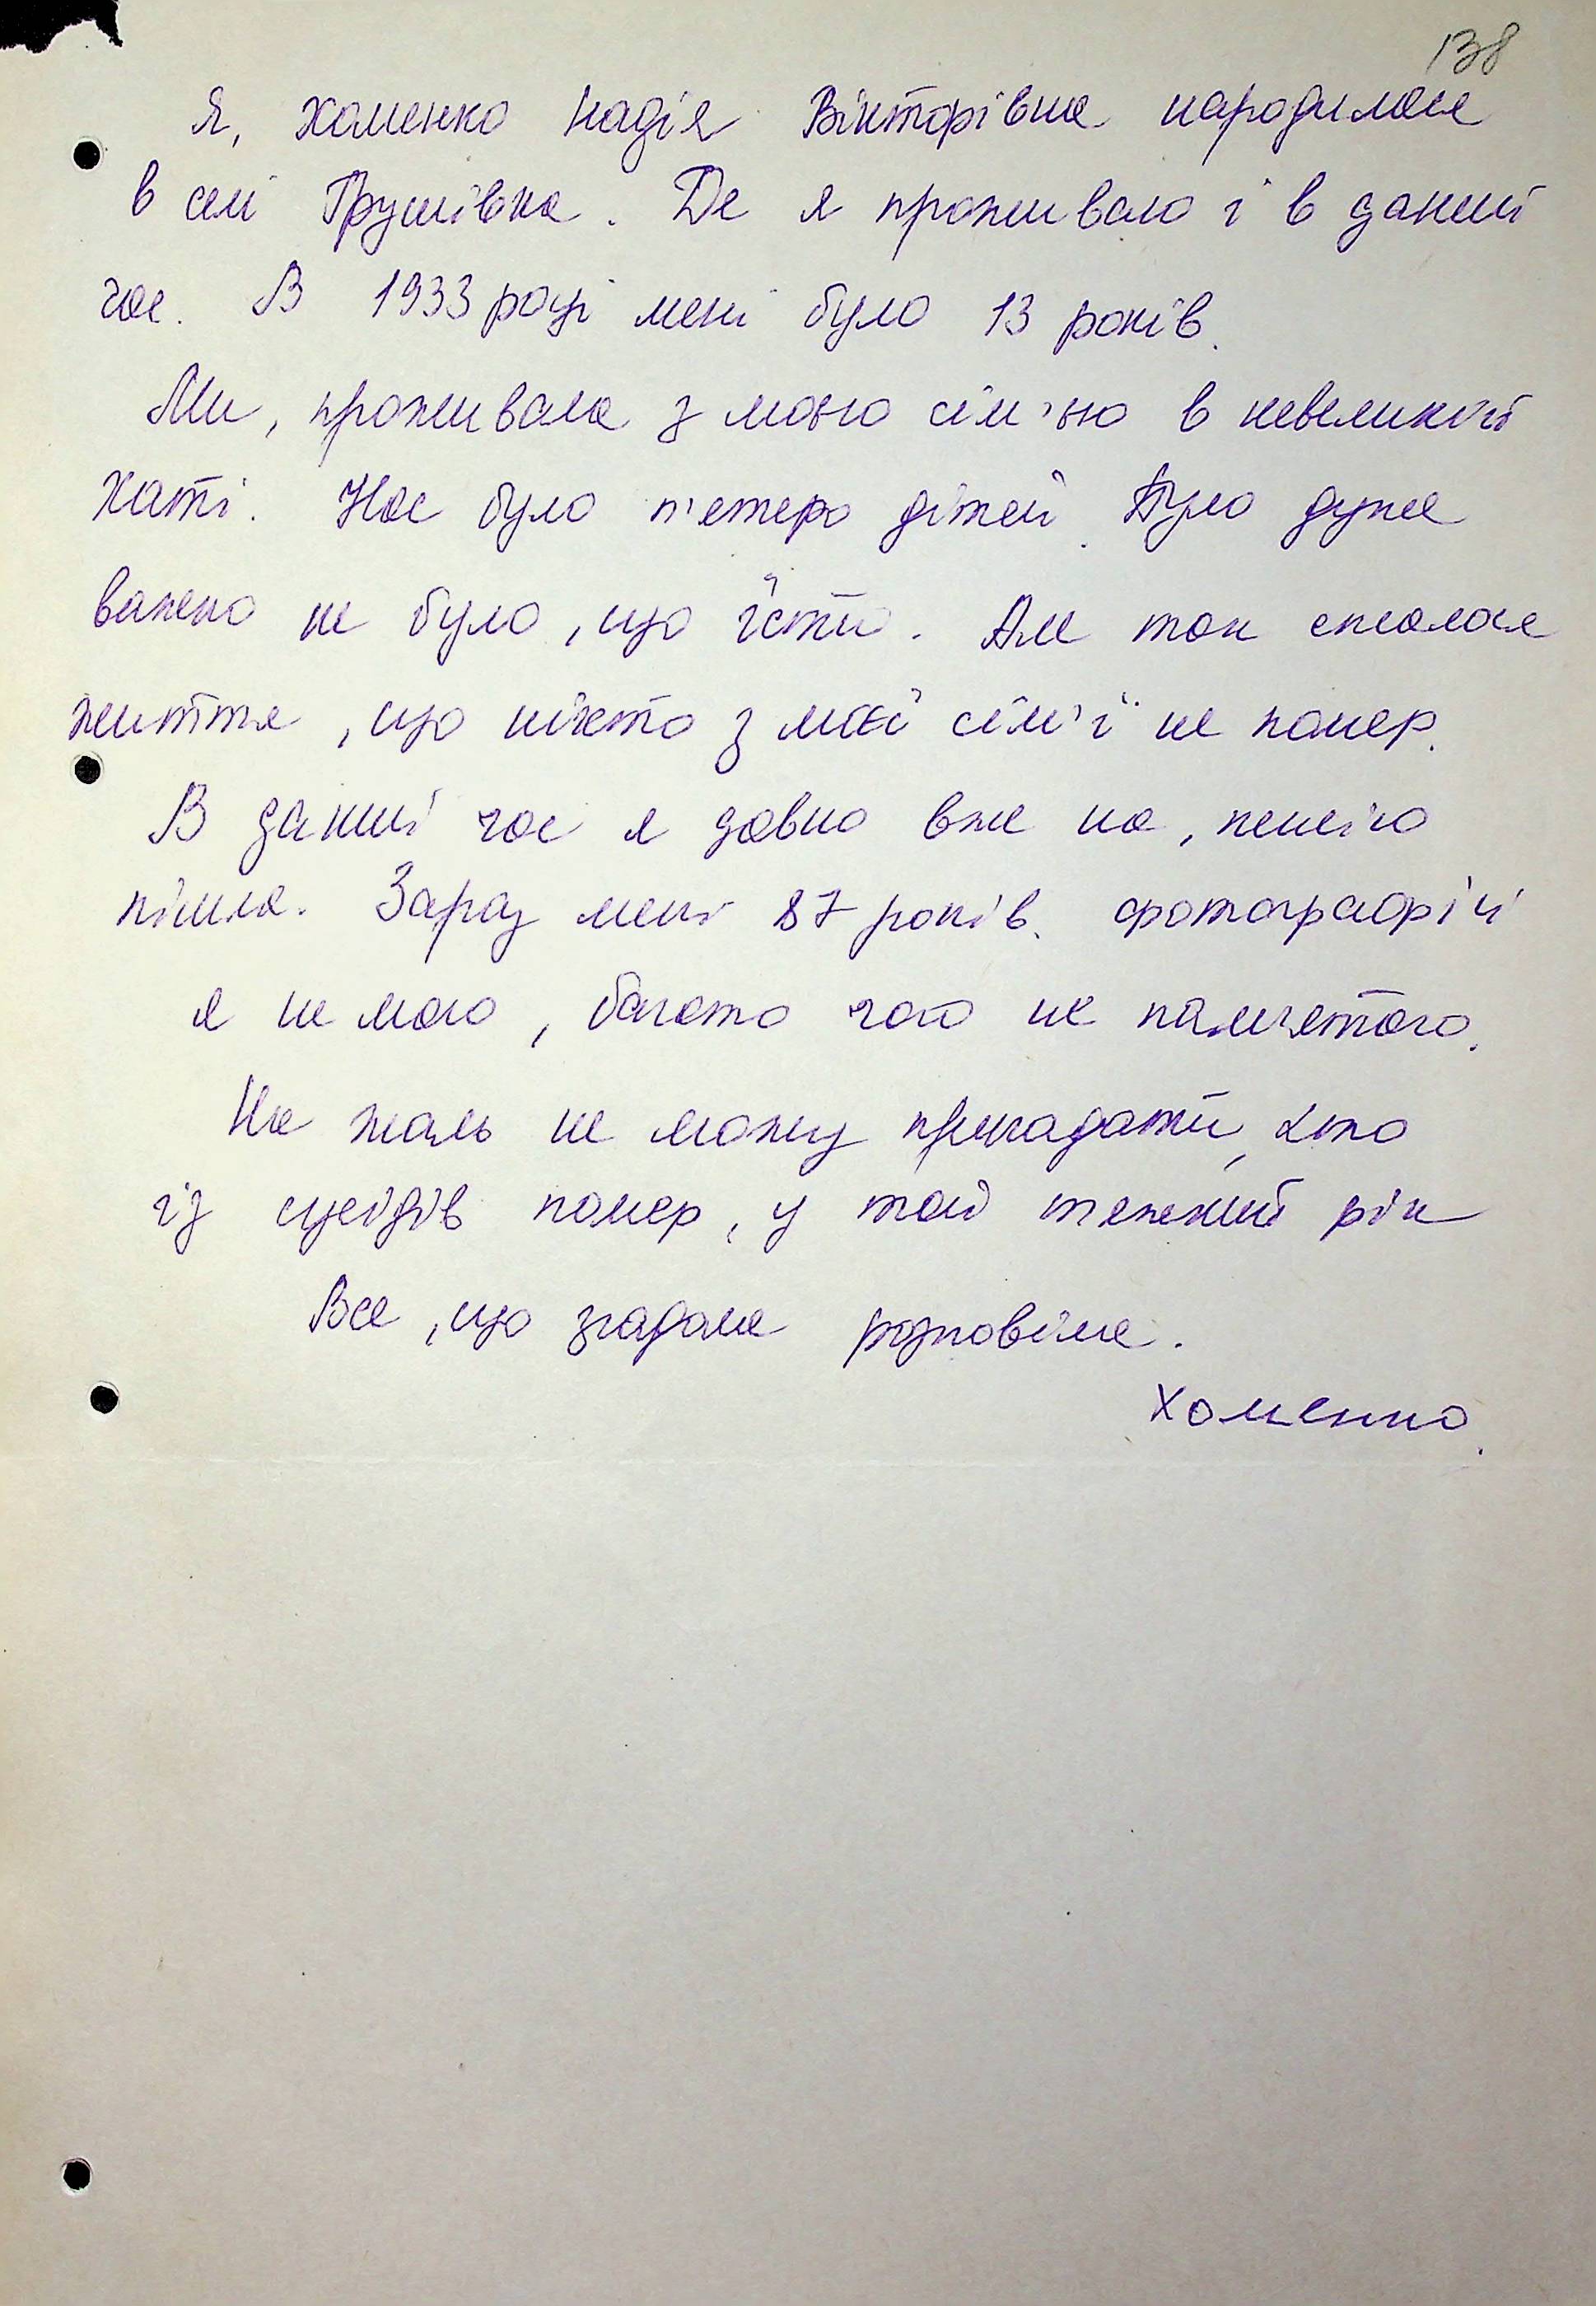 138
Я, Хоменко Надія Вікторівна народилася
в селі Грушівка. Де я проживаю і в даний
час. В 1933 році мені було 13 років.
Ми, проживала з моєю сім'ю в невеликій
хаті. Нас було п'ятеро дітей. Було дуже
важко не було, що їсти. Але так склалося
життя, що ніхто з моєї сім'ї не помер.
В даний час я давно вже на, пенсію
пішла. Зараз мені 87 років. фотографій
я не маю, багато чого не пам'ятаю.
На жаль не можу пригадати, хто
із сусідів помер, у той тяжкий рік
Все, що згадала розповіла.
Хоменко.